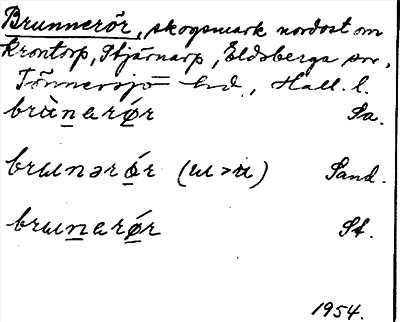 Brunnerör, skogsmark nordost om
Krontorp, Stjärnarp, Eldsberga sn,
Tönnersjö hd., Hall. l.
brùn̲ərǿ̲r Sa.
brɯnərǿ̲r (ɯ>u) Sand.
brɯn̲ərǿ̲r St.
1954.